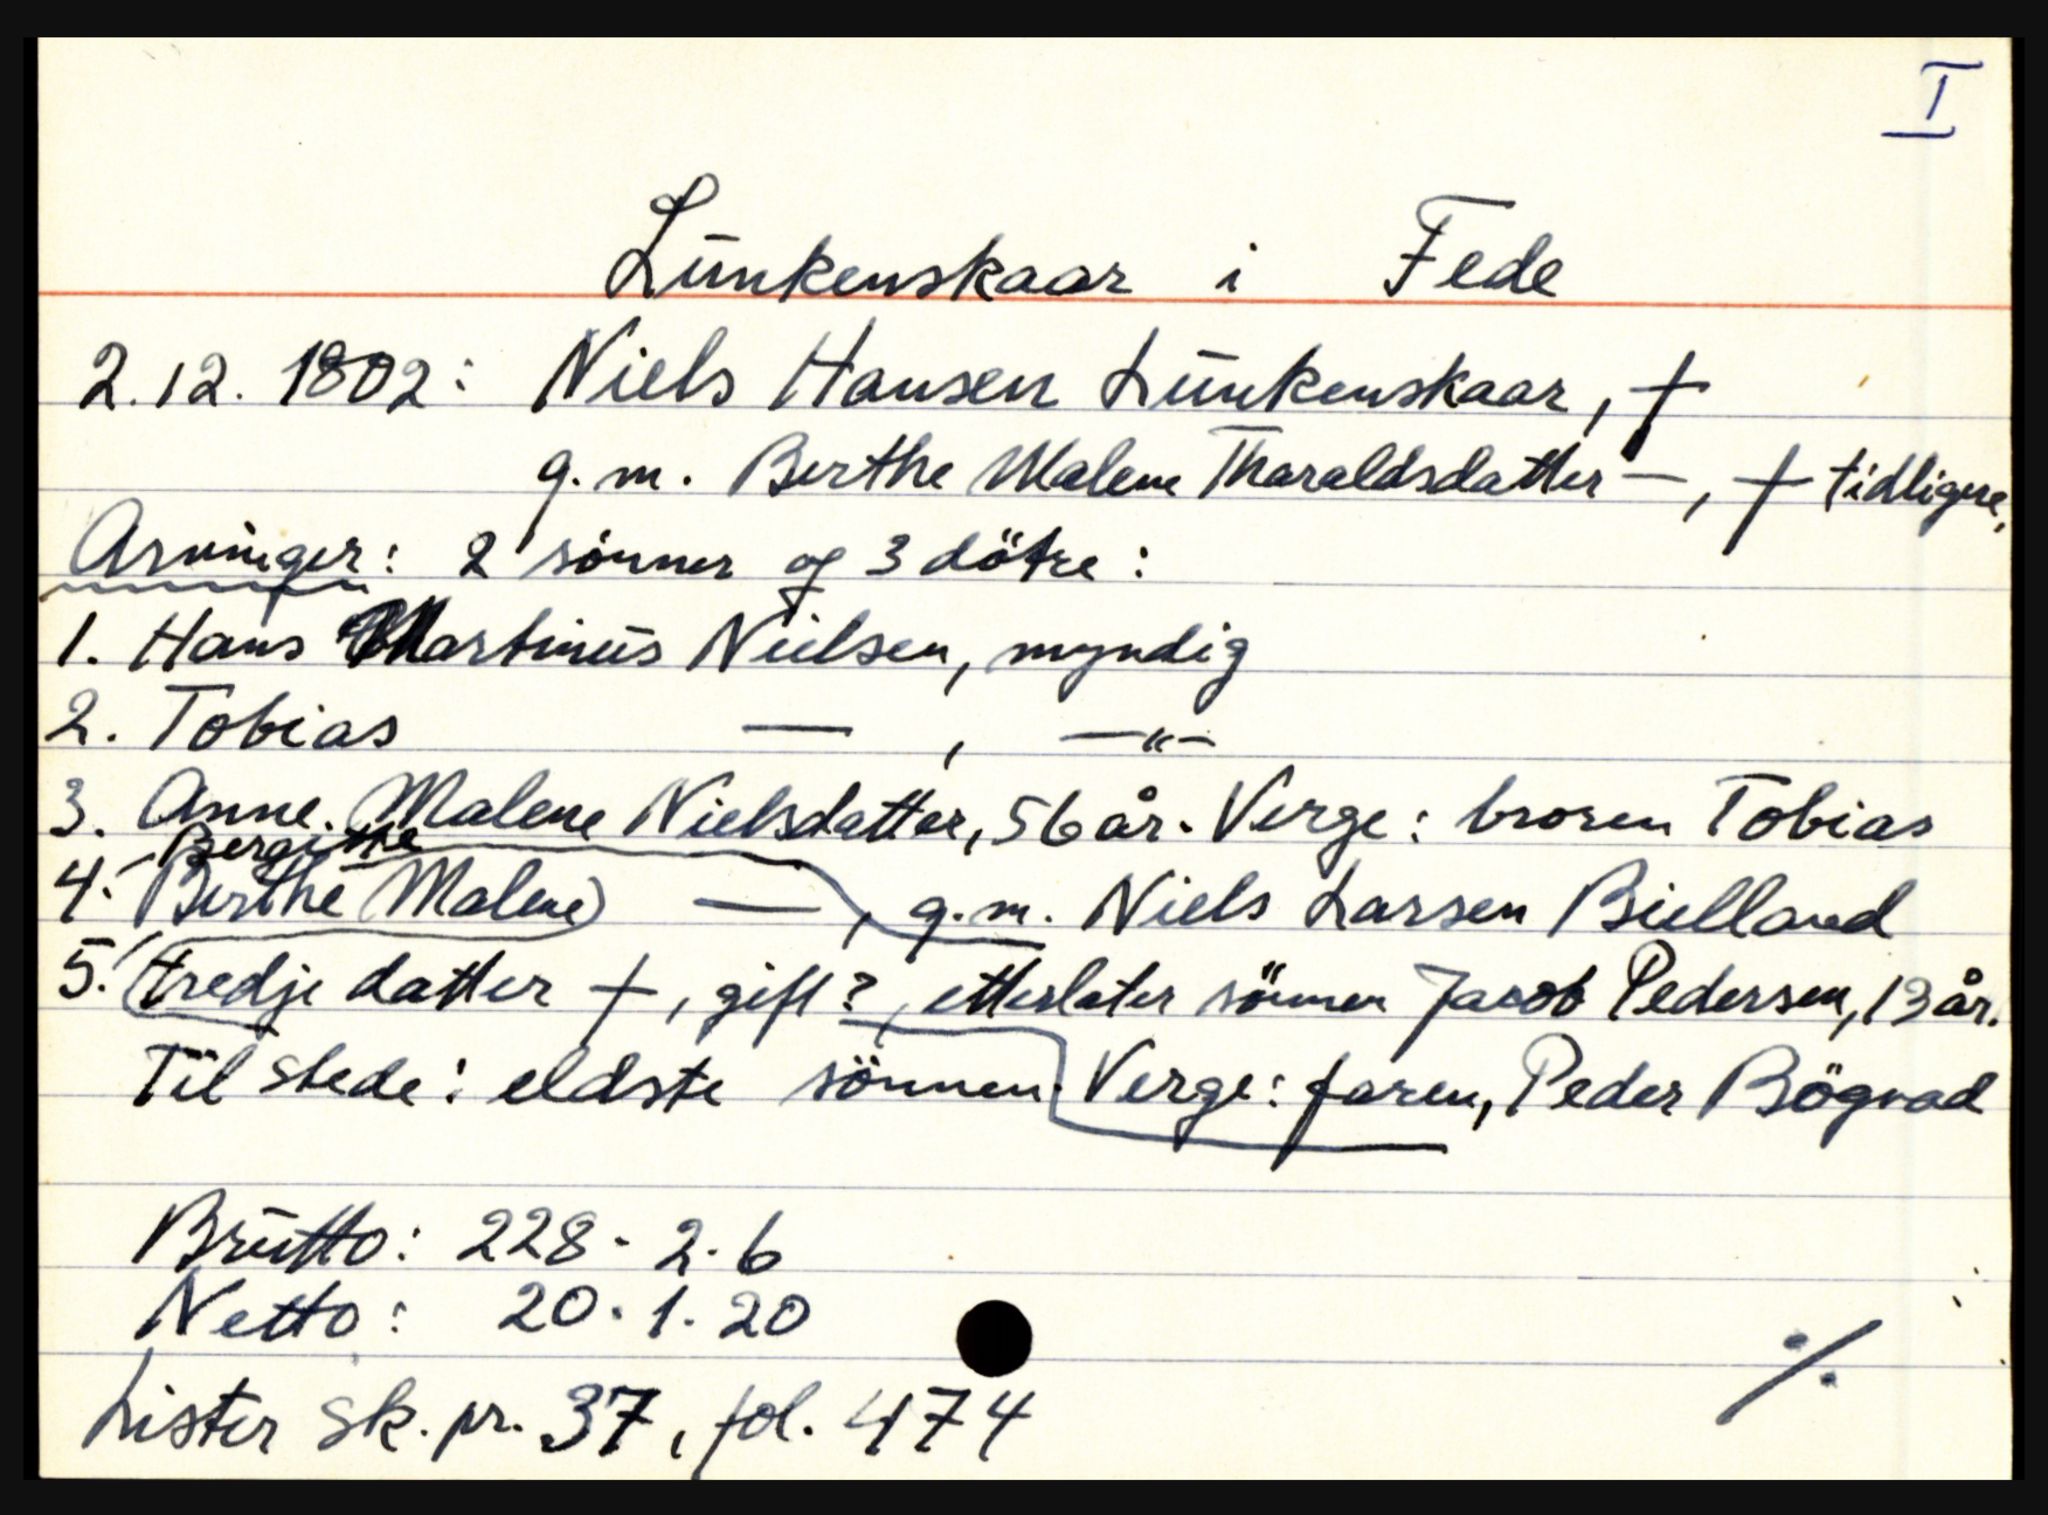 I
Lunkenskaar i Fede
2.12. 1802: Niels Hansen Lunkenskaar, †
g.m. Berthe Malene Tharaldsdatter —, † tidligere,
Arvinger: 2 sönner og 3 dötre:
1. Hans Martinus Nielsen, myndig
2. Tobias — , —"—
3. Anne Malene Nielsdatter, 56 år. Verge: broren Tobias
Bergithe
4. Berthe (Malene) — , g.m. Niels Larsen Bielland
5. tredje datter †, gift?, etterlater sönnen Jacob Pedersen, 13 år.
Til stede: eldste sönnen. Verge: faren, Peder Bögvad
Brutto: 228 - 2 - 6
Netto: 20 - 1 - 20
Lister sk. pr. 37, fol. 474
./.